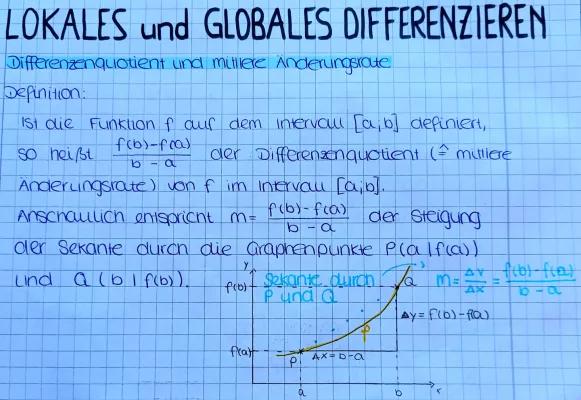 LOKALES und GLOBALES DIFFERENZIEREN
Differenzenquotient und mittlere Änderungsrate
Definition:
Ist die Funktion f auf dem Intervall [a;b] definiert,
so heißt f(b)-f(a) / b-a der Differenzenquotient (≙ mittlere
Änderungsrate) von f im Intervall [a;b].
Anschaulich entspricht m= f(b)-f(a) / b-a der Steigung
der Sekante durch die Graphenpunkte P(a|f(a))
und Q(b|f(b)).
y
f(b)
Sekante durch
P und Q
Q
m= Δy/Δx = f(b)-f(a) / b-a
Δy=f(b)-f(a)
f
f(a)
P
Δx=b-a
a
b
x